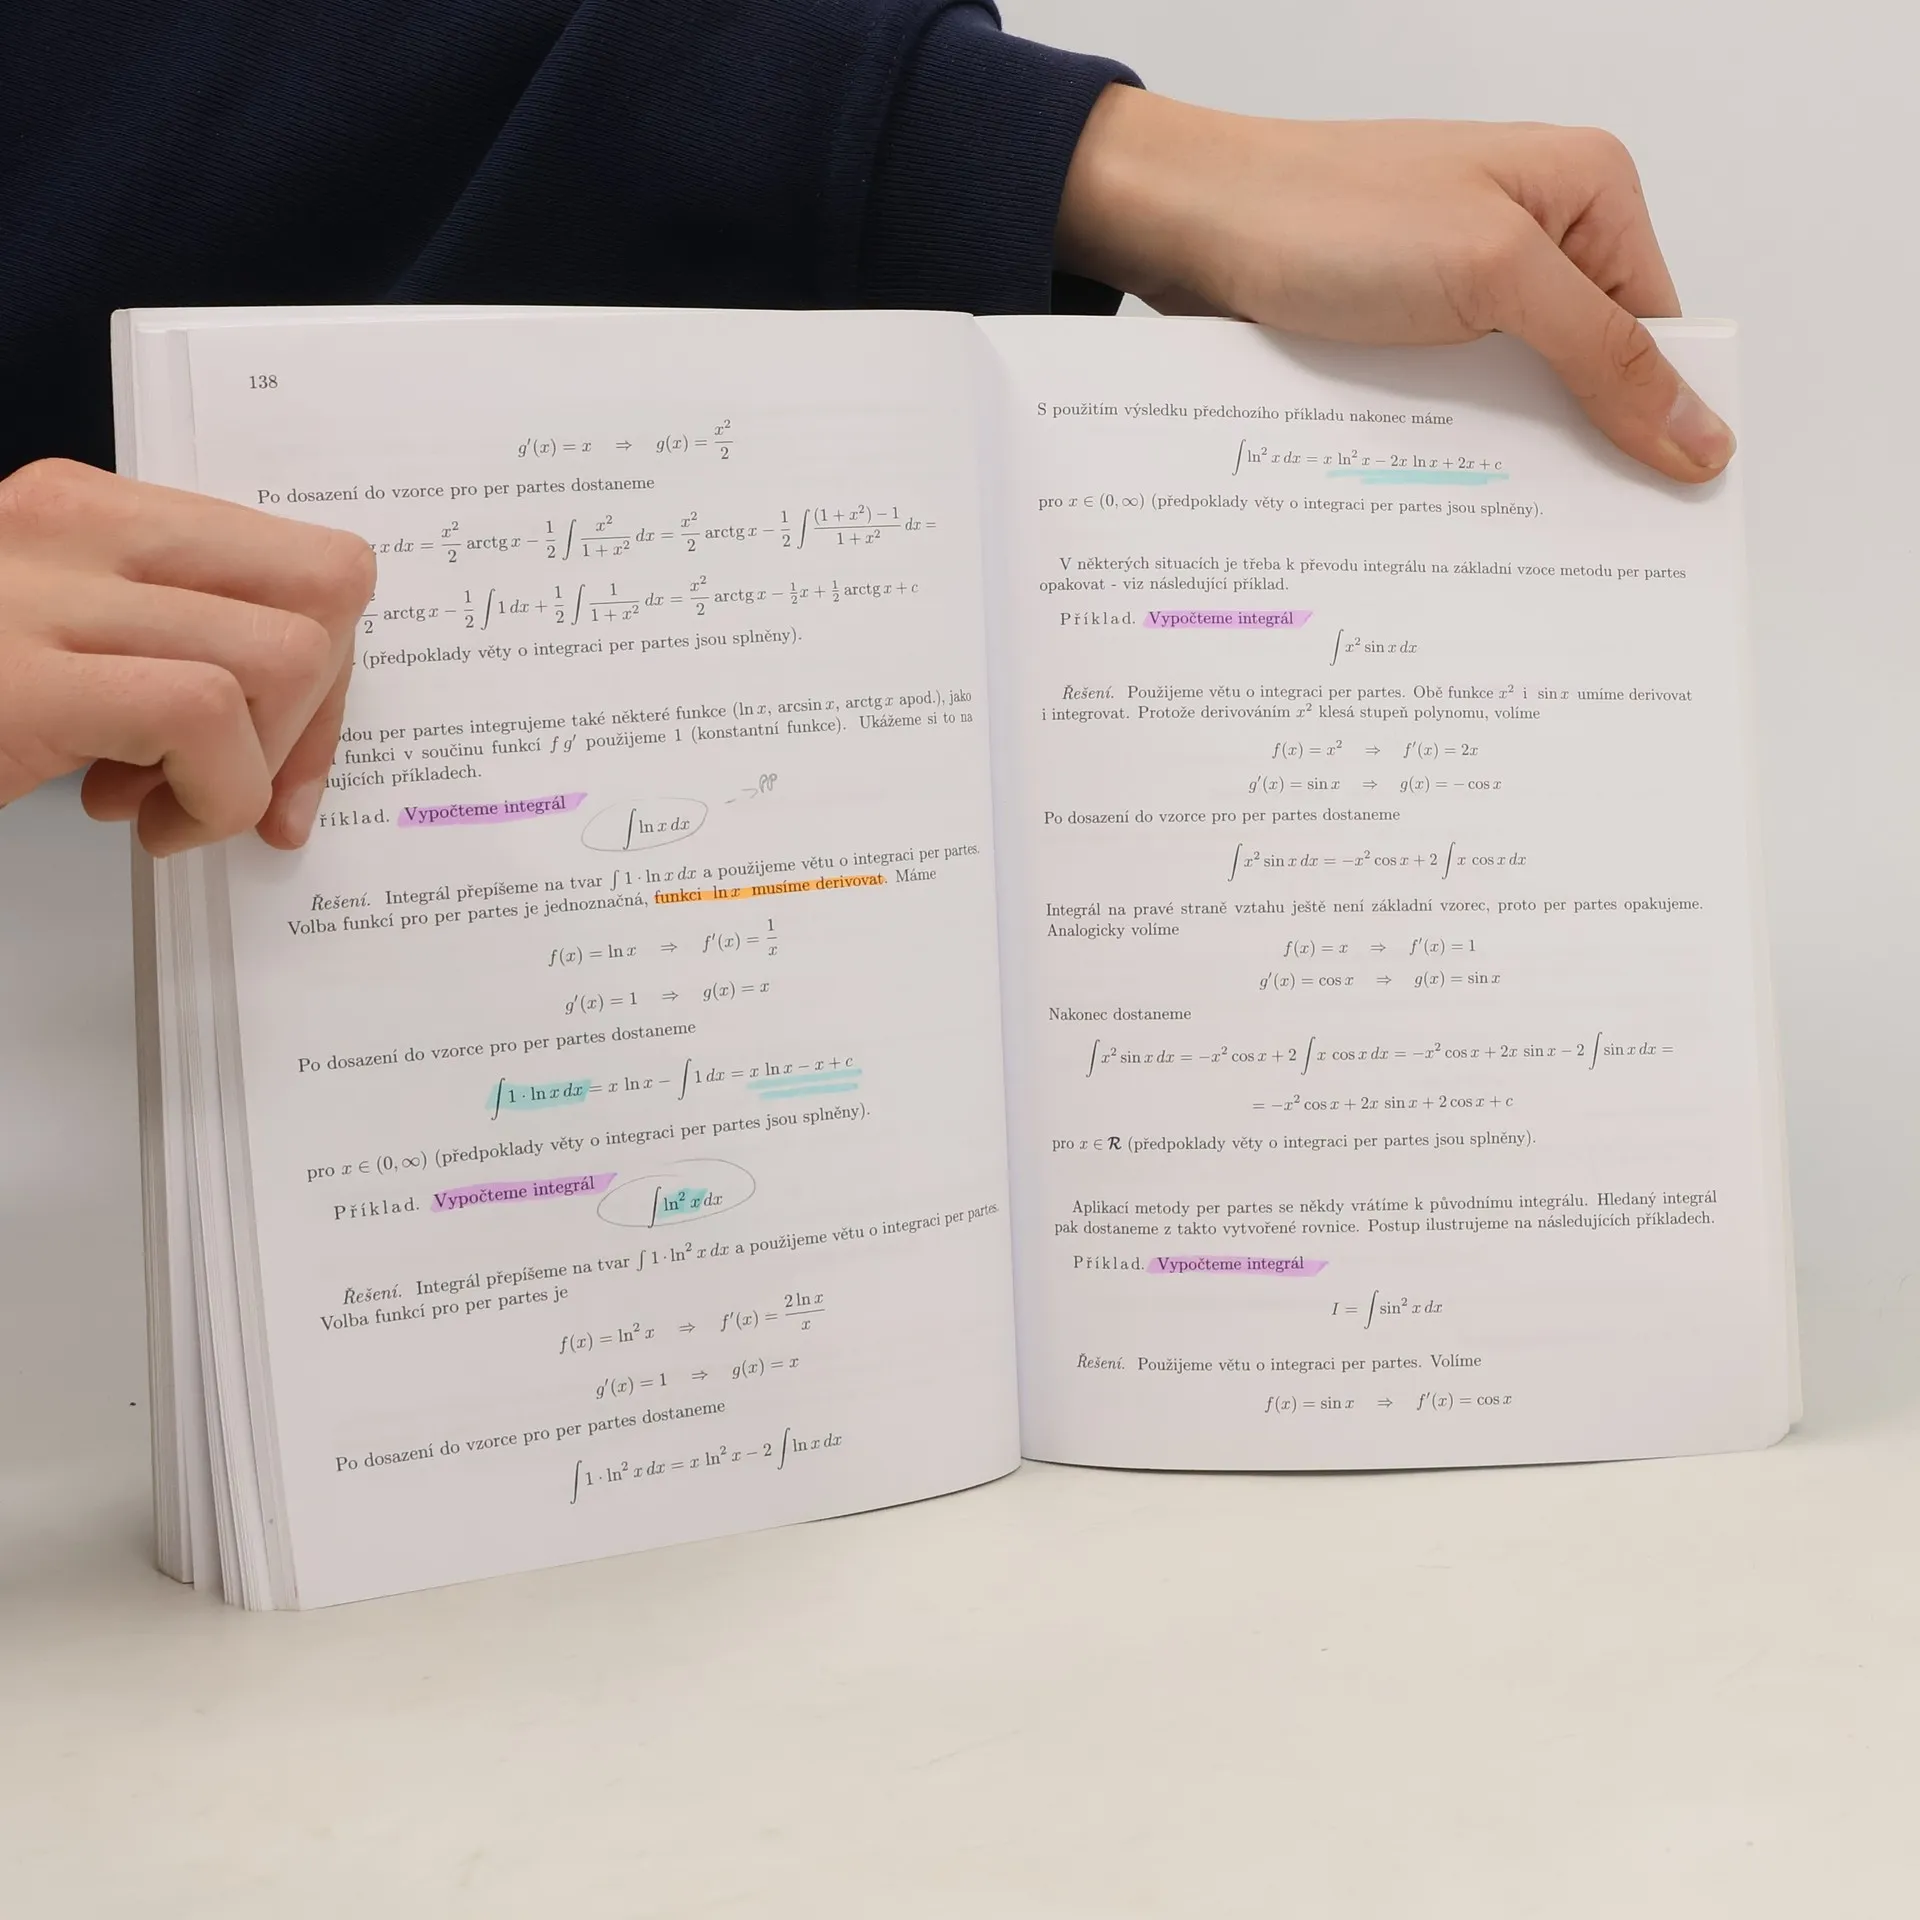 138
g′(x) = x ⇒ g(x) = x²/2
Po dosazení do vzorce pro per partes dostaneme
x dx = x²/2 arctg x − 1/2 ∫ x²/(1 + x²) dx = x²/2 arctg x − 1/2 ∫ ((1 + x²) − 1)/(1 + x²) dx =
/2 arctg x − 1/2 ∫ 1 dx + 1/2 ∫ 1/(1 + x²) dx = x²/2 arctg x − ½x + ½ arctg x + c
(předpoklady věty o integraci per partes jsou splněny).
dou per partes integrujeme také některé funkce (ln x, arcsin x, arctg x apod.), jako
funkci v součinu funkcí f g′ použijeme 1 (konstantní funkce). Ukážeme si to na
ujících příkladech.
říklad. Vypočteme integrál
∫ ln x dx → PP
Řešení. Integrál přepíšeme na tvar ∫ 1 · ln x dx a použijeme větu o integraci per partes.
Volba funkcí pro per partes je jednoznačná, funkci ln x musíme derivovat. Máme
f(x) = ln x ⇒ f′(x) = 1/x
g′(x) = 1 ⇒ g(x) = x
Po dosazení do vzorce pro per partes dostaneme
∫ 1 · ln x dx = x ln x − ∫ 1 dx = x ln x − x + c
pro x ∈ (0, ∞) (předpoklady věty o integraci per partes jsou splněny).
Příklad. Vypočteme integrál
∫ ln² x dx
Řešení. Integrál přepíšeme na tvar ∫ 1 · ln² x dx a použijeme větu o integraci per partes.
Volba funkcí pro per partes je
f(x) = ln² x ⇒ f′(x) = 2 ln x/x
g′(x) = 1 ⇒ g(x) = x
Po dosazení do vzorce pro per partes dostaneme
∫ 1 · ln² x dx = x ln² x − 2 ∫ ln x dx
S použitím výsledku předchozího příkladu nakonec máme
∫ ln² x dx = x ln² x − 2x ln x + 2x + c
pro x ∈ (0, ∞) (předpoklady věty o integraci per partes jsou splněny).
V některých situacích je třeba k převodu integrálu na základní vzoce metodu per partes
opakovat - viz následující příklad.
Příklad. Vypočteme integrál
∫ x² sin x dx
Řešení. Použijeme větu o integraci per partes. Obě funkce x² i sin x umíme derivovat
i integrovat. Protože derivováním x² klesá stupeň polynomu, volíme
f(x) = x² ⇒ f′(x) = 2x
g′(x) = sin x ⇒ g(x) = − cos x
Po dosazení do vzorce pro per partes dostaneme
∫ x² sin x dx = −x² cos x + 2 ∫ x cos x dx
Integrál na pravé straně vztahu ještě není základní vzorec, proto per partes opakujeme.
Analogicky volíme
f(x) = x ⇒ f′(x) = 1
g′(x) = cos x ⇒ g(x) = sin x
Nakonec dostaneme
∫ x² sin x dx = −x² cos x + 2 ∫ x cos x dx = −x² cos x + 2x sin x − 2 ∫ sin x dx =
= −x² cos x + 2x sin x + 2 cos x + c
pro x ∈ R (předpoklady věty o integraci per partes jsou splněny).
Aplikací metody per partes se někdy vrátíme k původnímu integrálu. Hledaný integrál
pak dostaneme z takto vytvořené rovnice. Postup ilustrujeme na následujících příkladech.
Příklad. Vypočteme integrál
I = ∫ sin² x dx
Řešení. Použijeme větu o integraci per partes. Volíme
f(x) = sin x ⇒ f′(x) = cos x